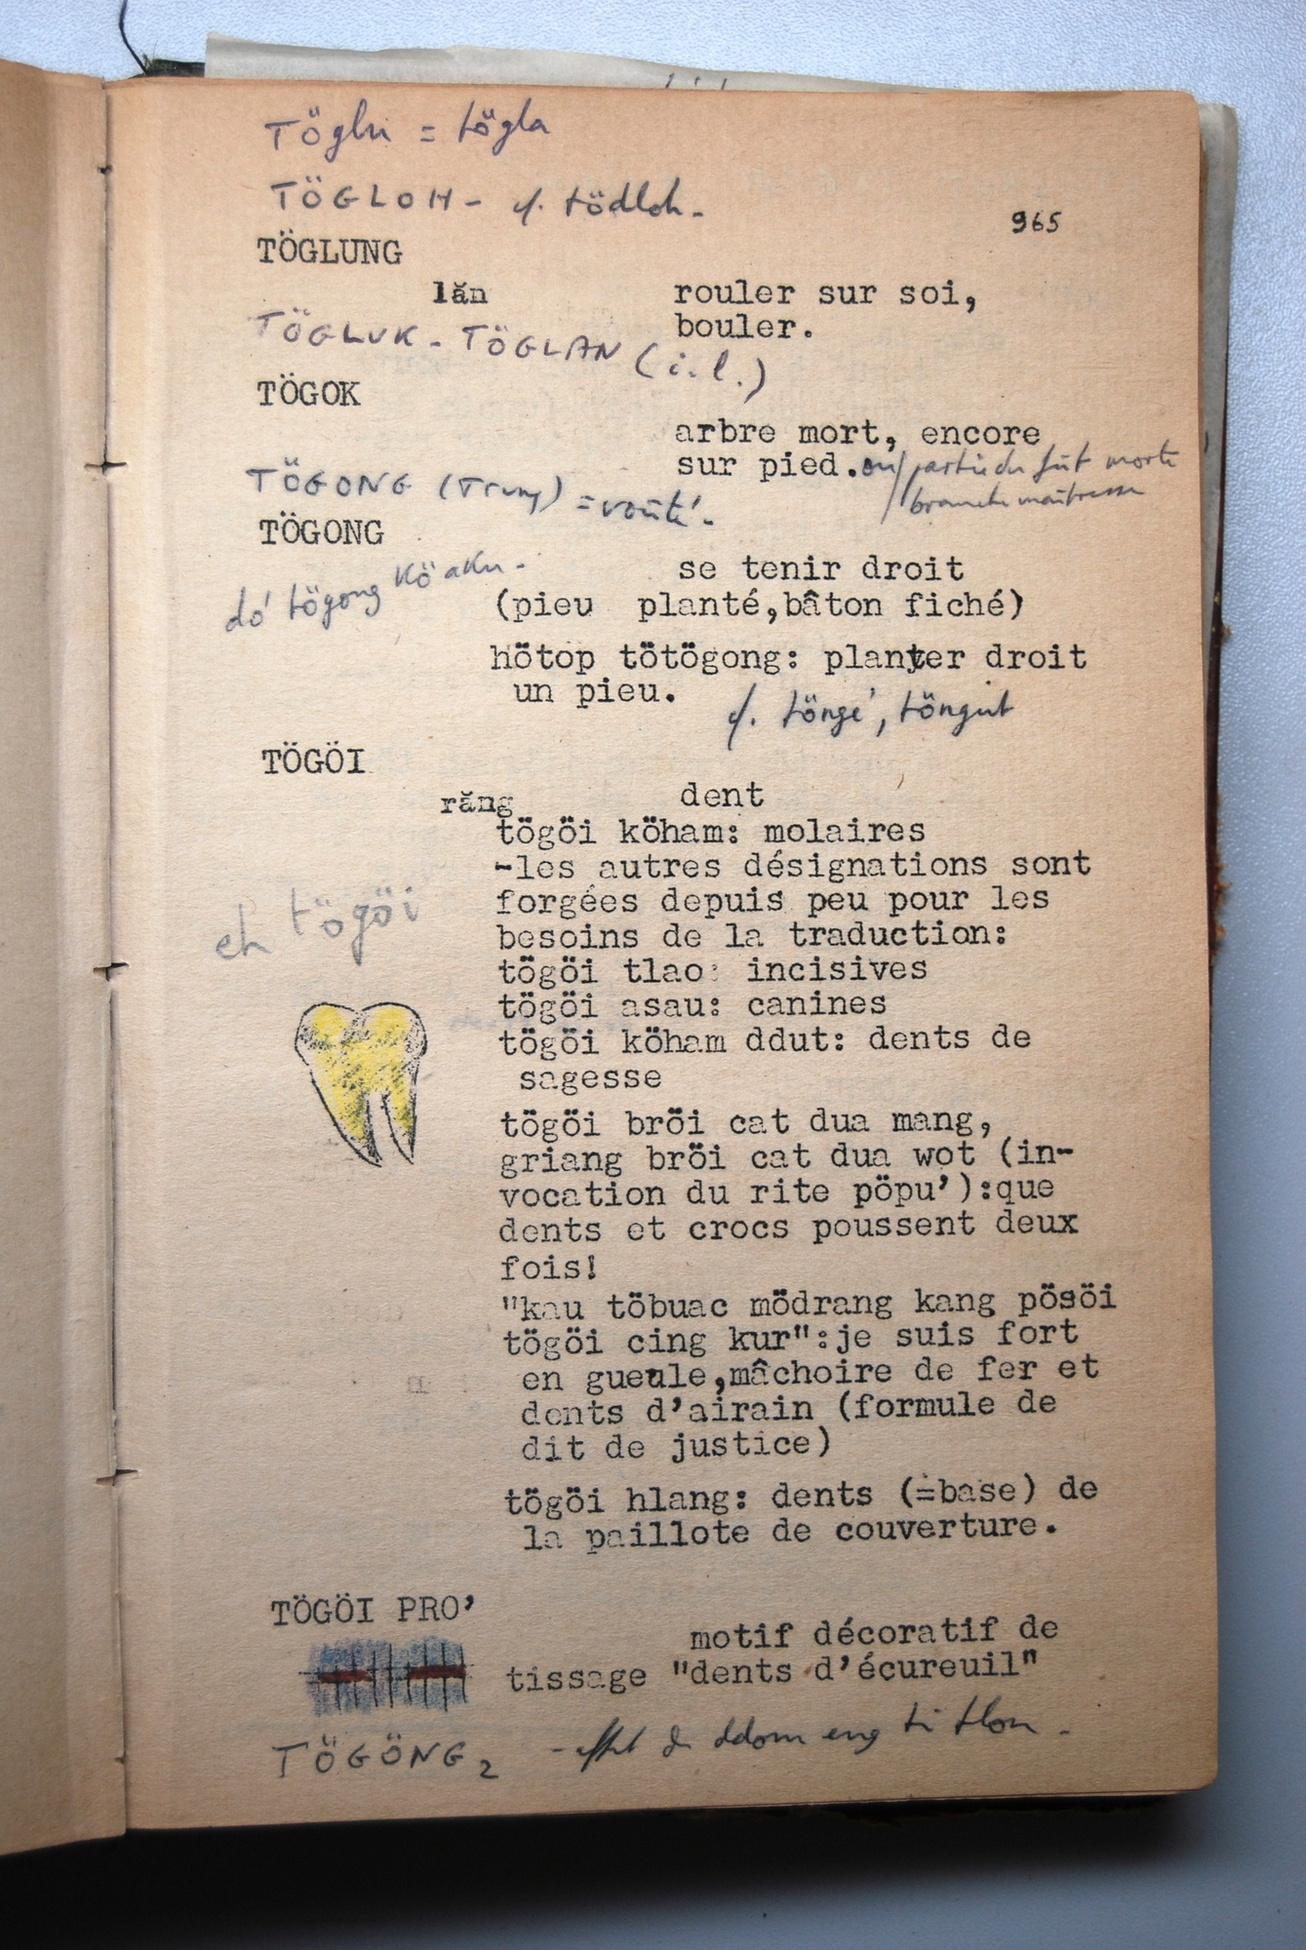 Töglu = tögla
TÖGLOH - cf. tödloh -
965
TÖGLUNG
lăn rouler sur soi,
bouler.
TÖGLUK - TÖGLAN (i.l.)
TÖGOK
arbre mort, encore
sur pied. ou/ partie du fût morte
branche maîtresse
TÖGONG (Trung) = voûté -
TÖGONG
dó tögong kö aku -
se tenir droit
(pieu planté,bâton fiché)
hötop tötögong: planter droit
un pieu.
cf. töngé, töngut
TÖGÖI
răng dent
tögöi köham: molaires
-les autres désignations sont
forgées depuis peu pour les
besoins de la traduction:
eh tögöi
tögöi tlao: incisives
tögöi asau: canines
tögöi köham ddut: dents de
sagesse
tögöi bröi cat dua mang,
griang bröi cat dua wot (in-
vocation du rite pöpu'):que
dents et crocs poussent deux
fois!
"kau töbuac mödrang kang pösöi
tögöi cing kur":je suis fort
en gueule,mâchoire de fer et
dents d'airain (formule de
dit de justice)
tögöi hlang: dents (=base) de
la paillote de couverture.
TÖGÖI PRO'
motif décoratif de
tissage "dents d'écureuil"
TÖGÖNG 2 - ddom eng ti tlon -